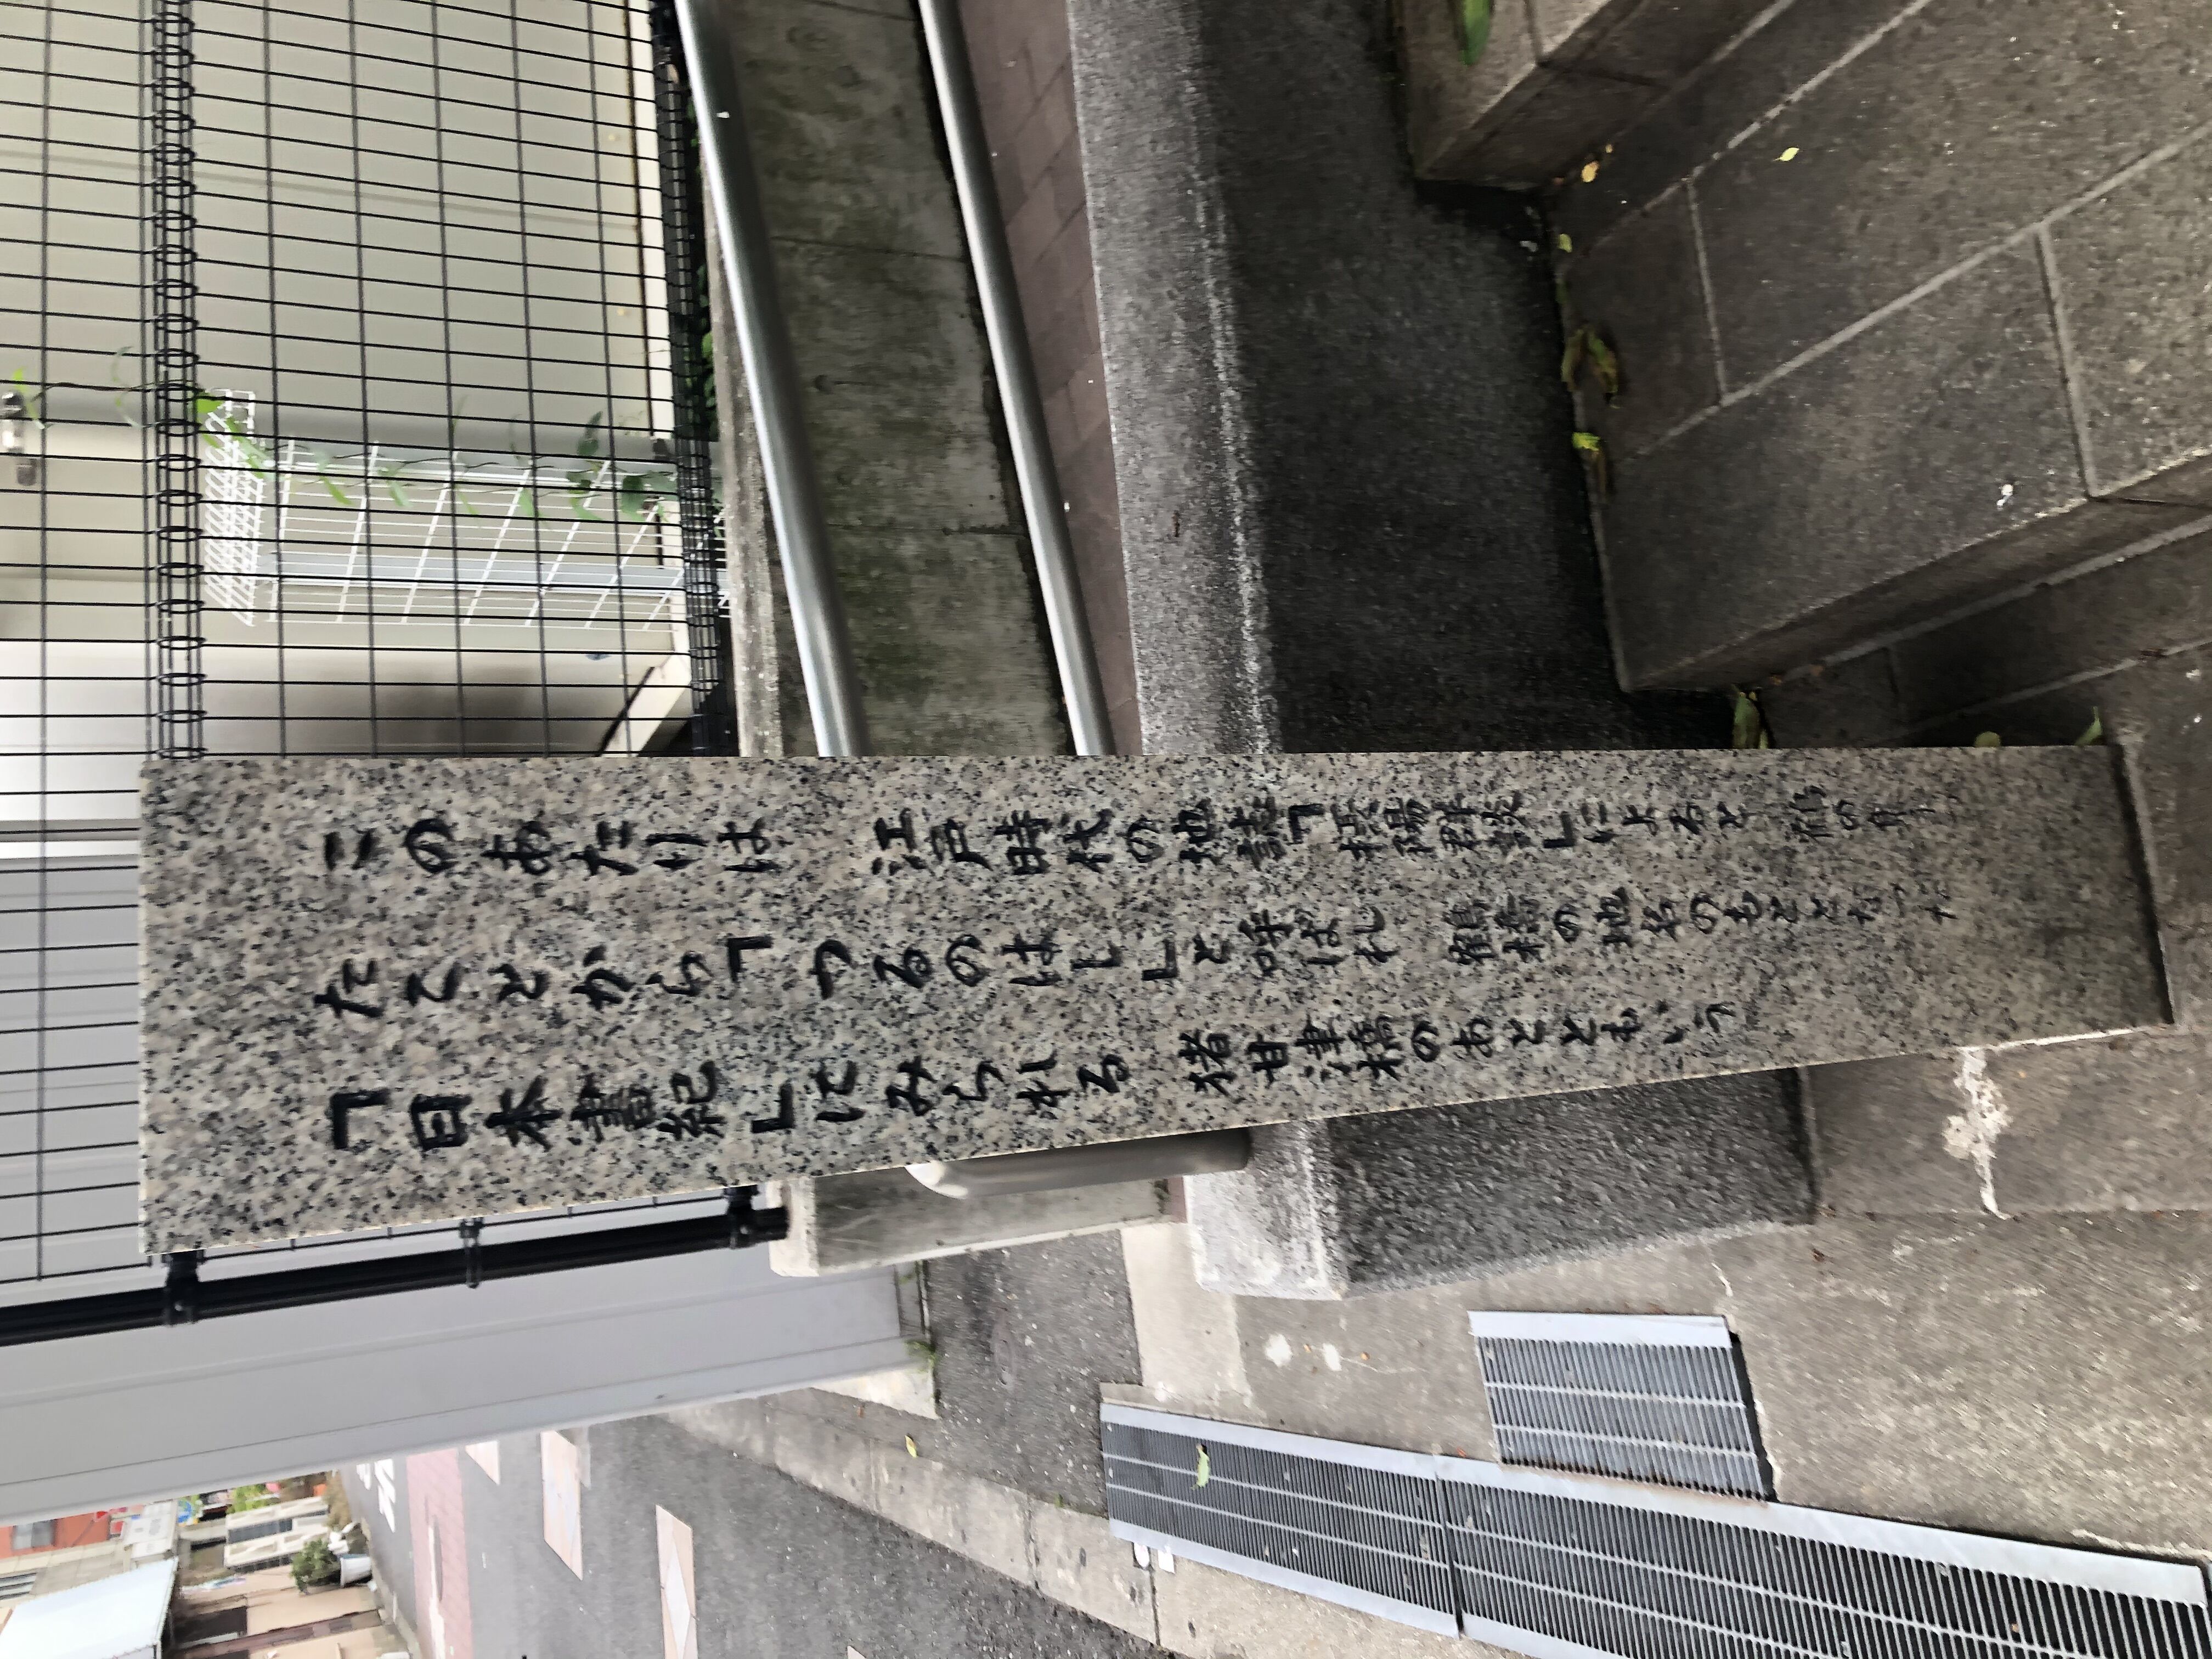 このあたりは 江戸時代の地誌「摂陽群談」によると 鶴の
たことから「つるのはし」と呼ばれ 鶴橋の地名のもととなった
「日本書紀」にみられる 猪甘津橋のあとともいう